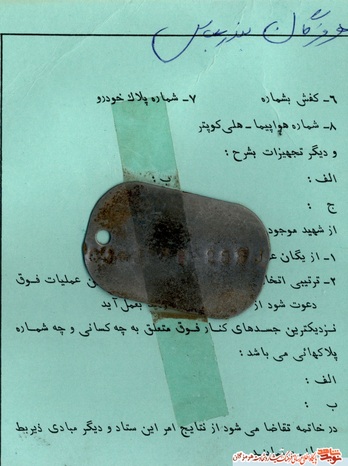 هرمزگان بندرعباس
۶- کفش بشماره ۷- شماره پلاک خودرو
۸- شماره هواپیما-هلی کوپتر
و دیگر تجهیزات بشرح :
الف : ب :
ج :
از شهید موجود
۱- از یگان
۲- ترتیبی اتخا عملیات فوق
دعوت شود از بعمل آید
نزدیکترین جسدهای کنار فوق متعلق به چه کسانی و چه شماره
پلاکهائی می باشد :
الف :
ب :
در خاتمه تقاضا می شود از نتایج امر این ستاد و دیگر مبادی ذیربط